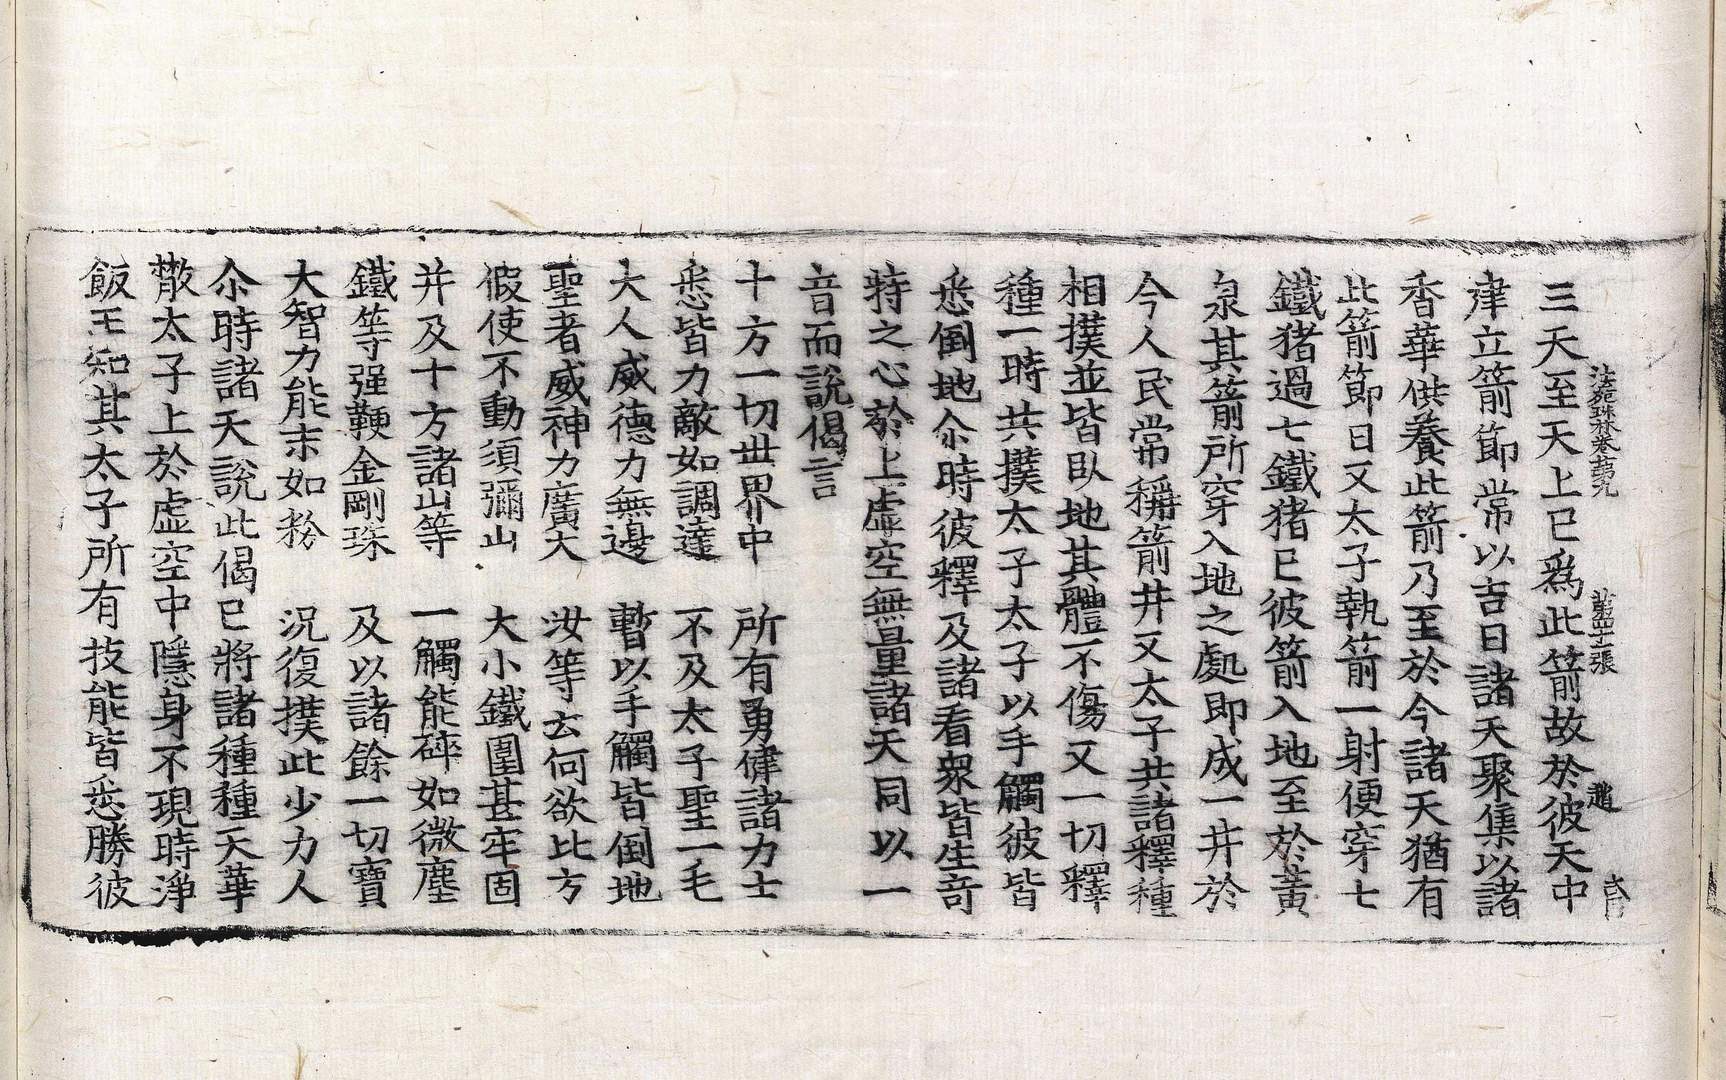 法苑珠林卷第九　第四十二張　趙
三天至天上已爲此箭故於彼天中
建立箭節常以吉日諸天聚集以諸
香華供養此箭乃至於今諸天猶有
此箭節日又太子執箭一射便穿七
鐵猪過七鐵猪已彼箭入地至於黃
泉其箭所穿入地之處即成一井於
今人民常稱箭井又太子共諸釋種
相撲並皆臥地其體不傷又一切釋
種一時共撲太子太子以手觸彼皆
悉倒地尒時彼釋及諸看衆皆生奇
特之心於上虛空無量諸天同以一
音而說偈言
十方一切世界中　所有勇健諸力士
悉皆力敵如調達　不及太子聖一毛
大人威德力無邊　暫以手觸皆倒地
聖者威神力廣大　汝等云何欲比方
假使不動須彌山　大小鐵圍甚牢固
并及十方諸山等　一觸能碎如微塵
鐵等强鞕金剛珠　及以諸餘一切寶
大智力能末如粉　況復撲此少力人
尒時諸天說此偈已將諸種種天華
散太子上於虛空中隱身不現時淨
飯王知其太子所有技能皆悉勝彼